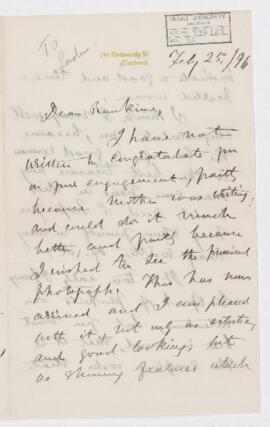 To
London
University St
Montreal.
McGILL UNIVERSITY
ARCHIVES
Feb 25/96
Dear Rankine,
I have not
written to congratulate you
on your engagement, partly
because Mother was writing
and could do it much
better, and partly because
I wished to see the promised
photograph. This has now
arrived and I am pleased
with it, not only as artistic
and good looking, but
as showing features which